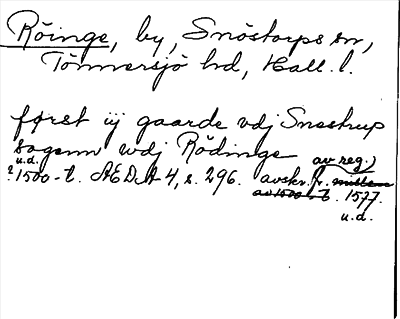 Röinge, by, Snöstorps sn,
Tönnersjö hd, Hall. l.
først iij gaarde vdj Snestrup
sogenn wdj Rödinge
u.d.
? 1500-t. ÆDA 4, s. 296. avskr. fr. 1577.
av reg.)
u.d.